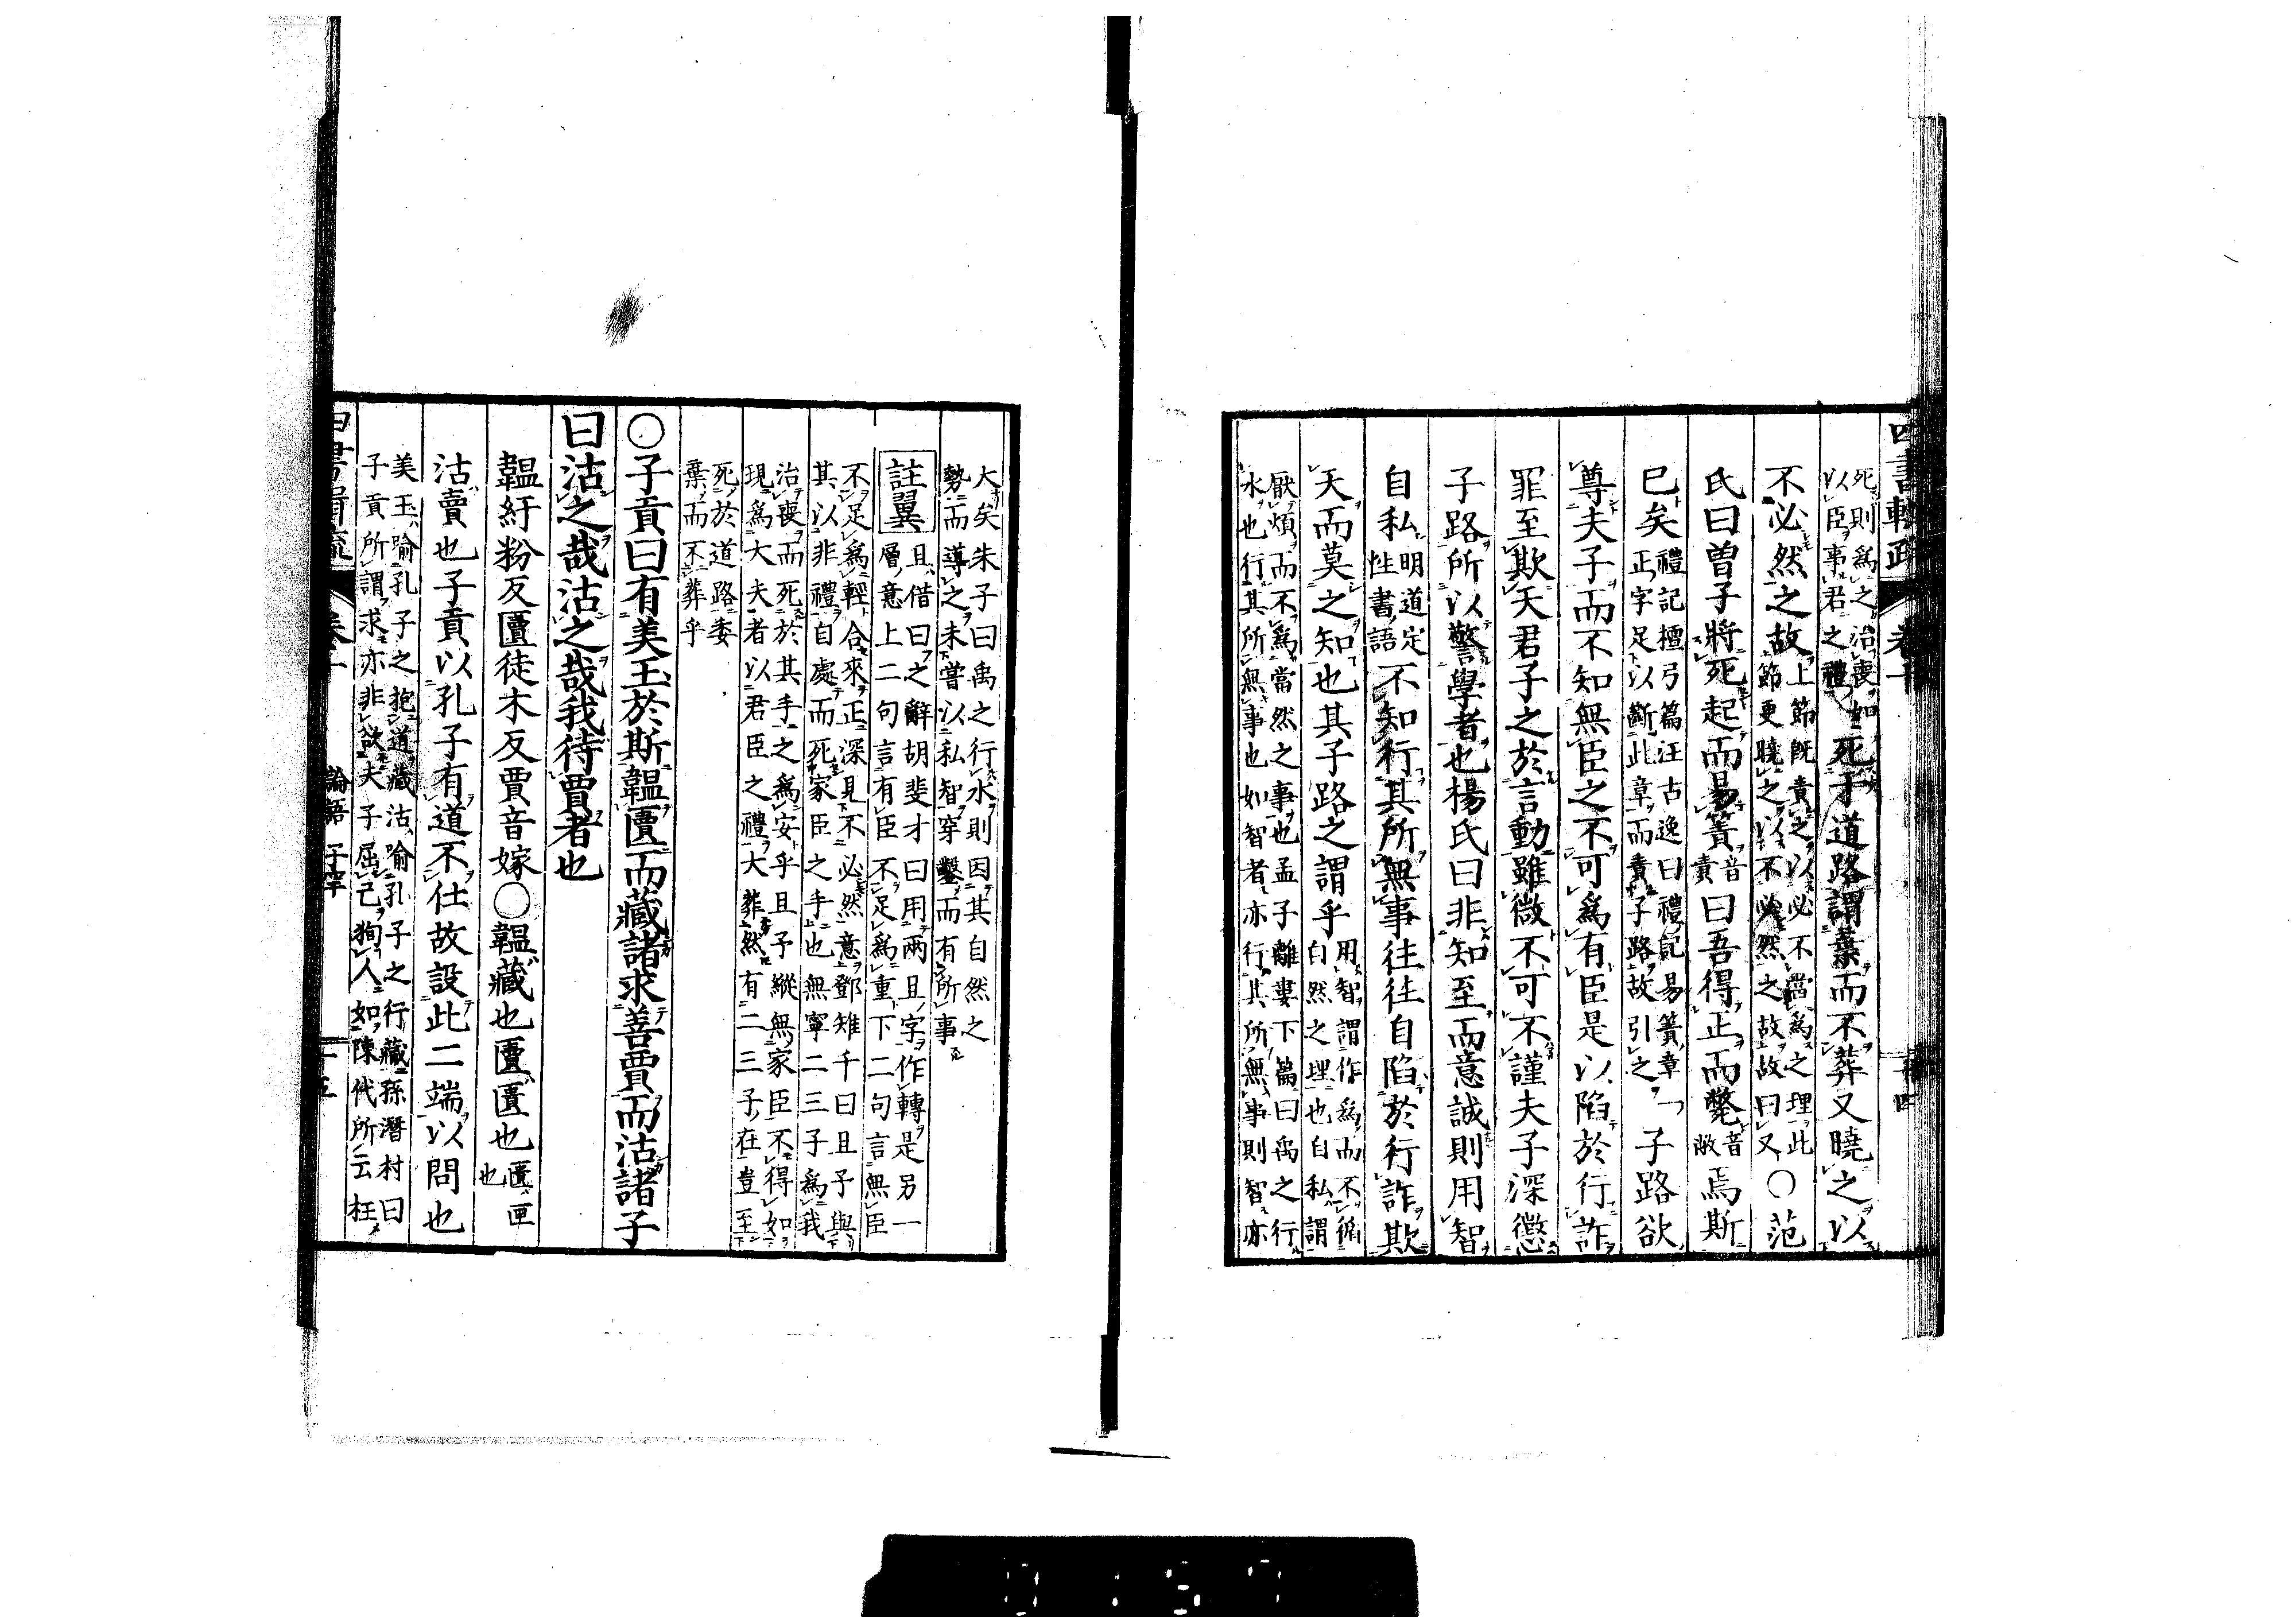 四書輯疏 卷十 十四
死則爲之治喪如
以臣事君之禮
死于道路謂棄而不葬又曉之以
不必然之故
上節既責之以必不當爲之理此
節更曉之以不必然之故故曰又
○范
氏曰曾子將死起而易簀
音
責
曰吾得正而斃
音
敝
焉斯
已矣
禮記檀弓篇汪古逸曰禮記易簀章
正字足以斷此章而責子路故引之
子路欲
尊夫子而不知無臣之不可爲有臣是以陷於行詐
罪至欺天君子之於言動雖微不可不謹夫子深懲
子路所以警學者也楊氏曰非知至而意誠則用智
自私
明道定
性書語
不知行其所無事往往自陷於行詐欺
天而莫之知也其子路之謂乎
用智謂作爲而不循
自然之理也自私謂
厭煩而不爲當然之事也孟子離婁下篇曰禹之行
水也行其所無事也如智者亦行其所無事則智亦
大矣朱子曰禹之行水則因其自然之
勢而導之未嘗以私智穿鑿而有所事
註翼
且借曰之辭胡斐才曰用兩且字作轉是另一
層意上二句言有臣不足爲重下二句言無臣
不足爲輕合來正深見不必然意鄧雉千曰且予與
其以非禮自處而死家臣之手也無寧二三子爲我
治喪而死於其手之爲安乎且予縱無家臣不得如
現爲大夫者以君臣之禮大葬然有二三子在豈至
死於道路委
棄而不葬乎
○子貢曰有美玉於斯韞匵而藏諸求善賈而沽諸子
曰沽之哉沽之哉我待賈者也
韞紆粉反匵徒木反賈音嫁○韞藏也匵匱也
匱匣
也
沽賣也子貢以孔子有道不仕故設此二端以問也
美玉喻孔子之抱道藏沽喻孔子之行藏孫潛村曰
子貢所謂求亦非欲夫子屈己狥人如陳代所云枉
四書輯疏 卷十 論語 子罕 十五